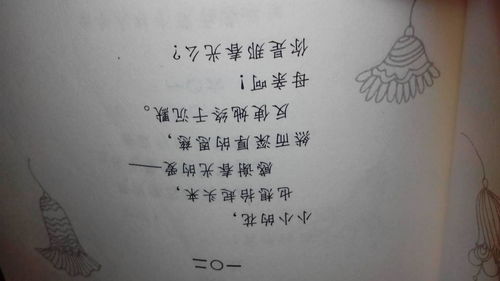 一〇二
小小的花，
也想抬起头来，
感谢春光的爱——
然而深厚的恩慈，
反使她终于沉默。
母亲呵！
你是那春光么？